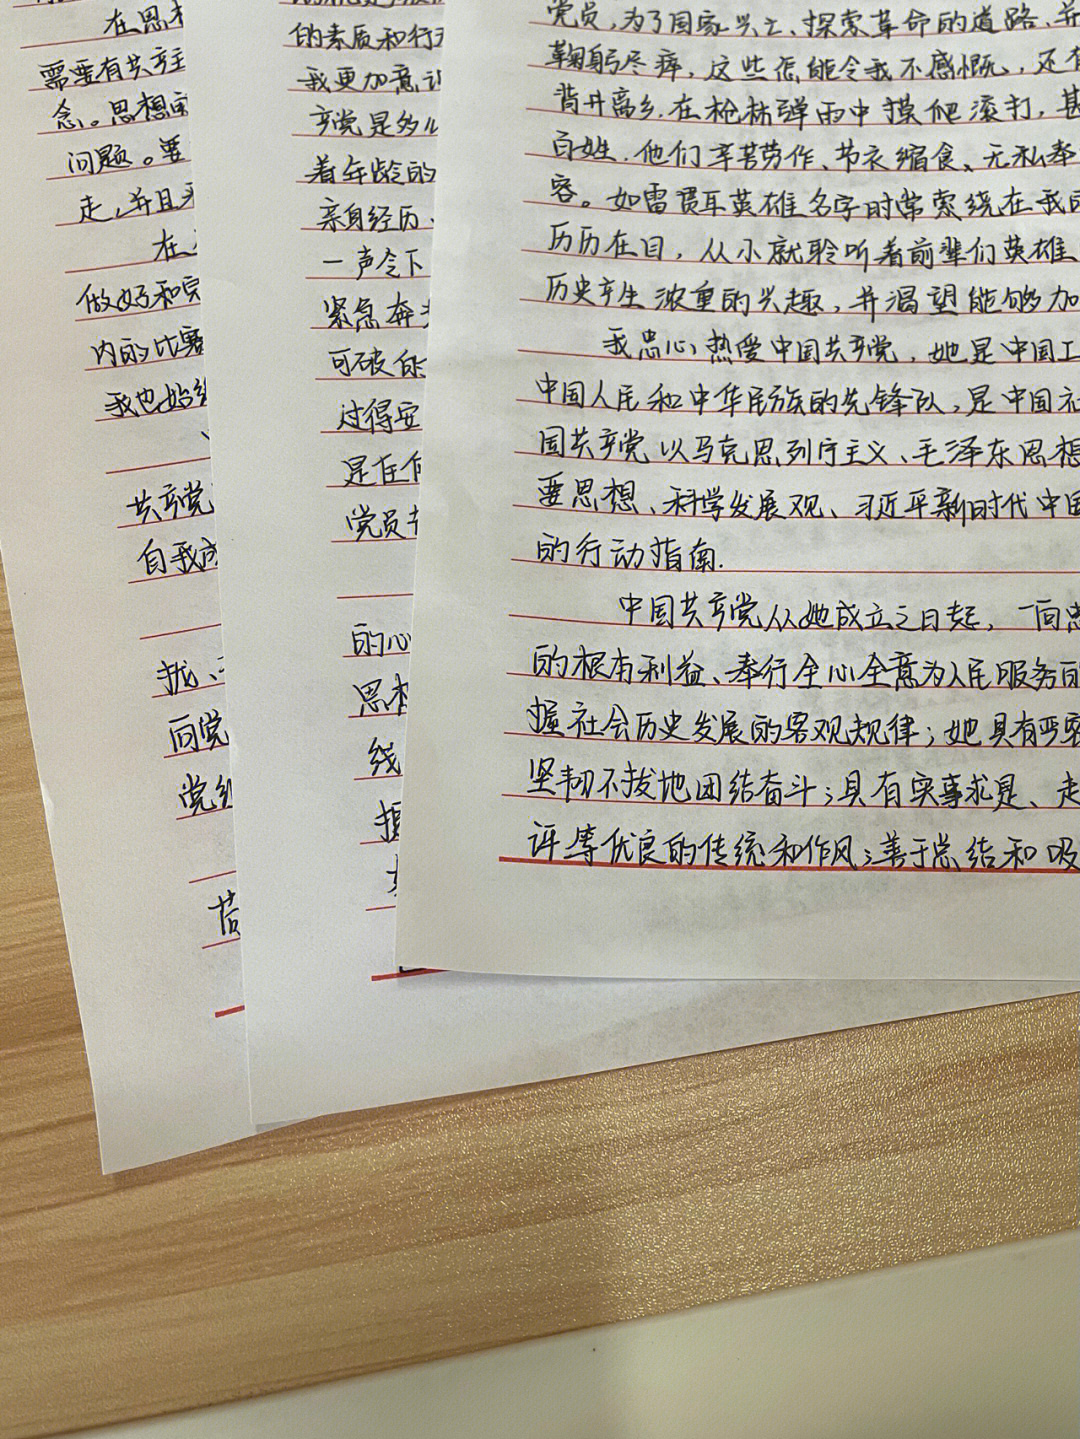 党员,为了国家兴亡、探索革命的道路、并
鞠躬尽瘁,这些怎能令我不感慨,还有
背井离乡.在枪林弹雨中摸爬滚打,甚
百姓.他们辛苦劳作、节衣缩食、无私奉
容。如雷贯耳英雄名字时常萦绕在我的
历历在目,从小就聆听着前辈们英雄
历史产生浓重的兴趣,并渴望能够加
我忠心热爱中国共产党,她是中国工
中国人民和中华民族的先锋队,是中国社
国共产党以马克思列宁主义、毛泽东思想
要思想、科学发展观、习近平新时代中国
的行动指南.
中国共产党从她成立之日起,一向忠
的根本利益、奉行全心全意为人民服务的
握社会历史发展的客观规律;她具有严密
坚韧不拔地团结奋斗;具有实事求是、走
评等优良的传统和作风;善于总结和吸
的素质和行
我更加意识
产党是多么
着年龄的
亲身经历、
一声令下
紧急奔
可破的
过得安
是在
党员
的心
思想
线
在思想
需要有共产主
念。思想
问题。要
走,并且
在
做好和完
内的比赛
我也始终
共产党
自我成
拢、
向党
党组